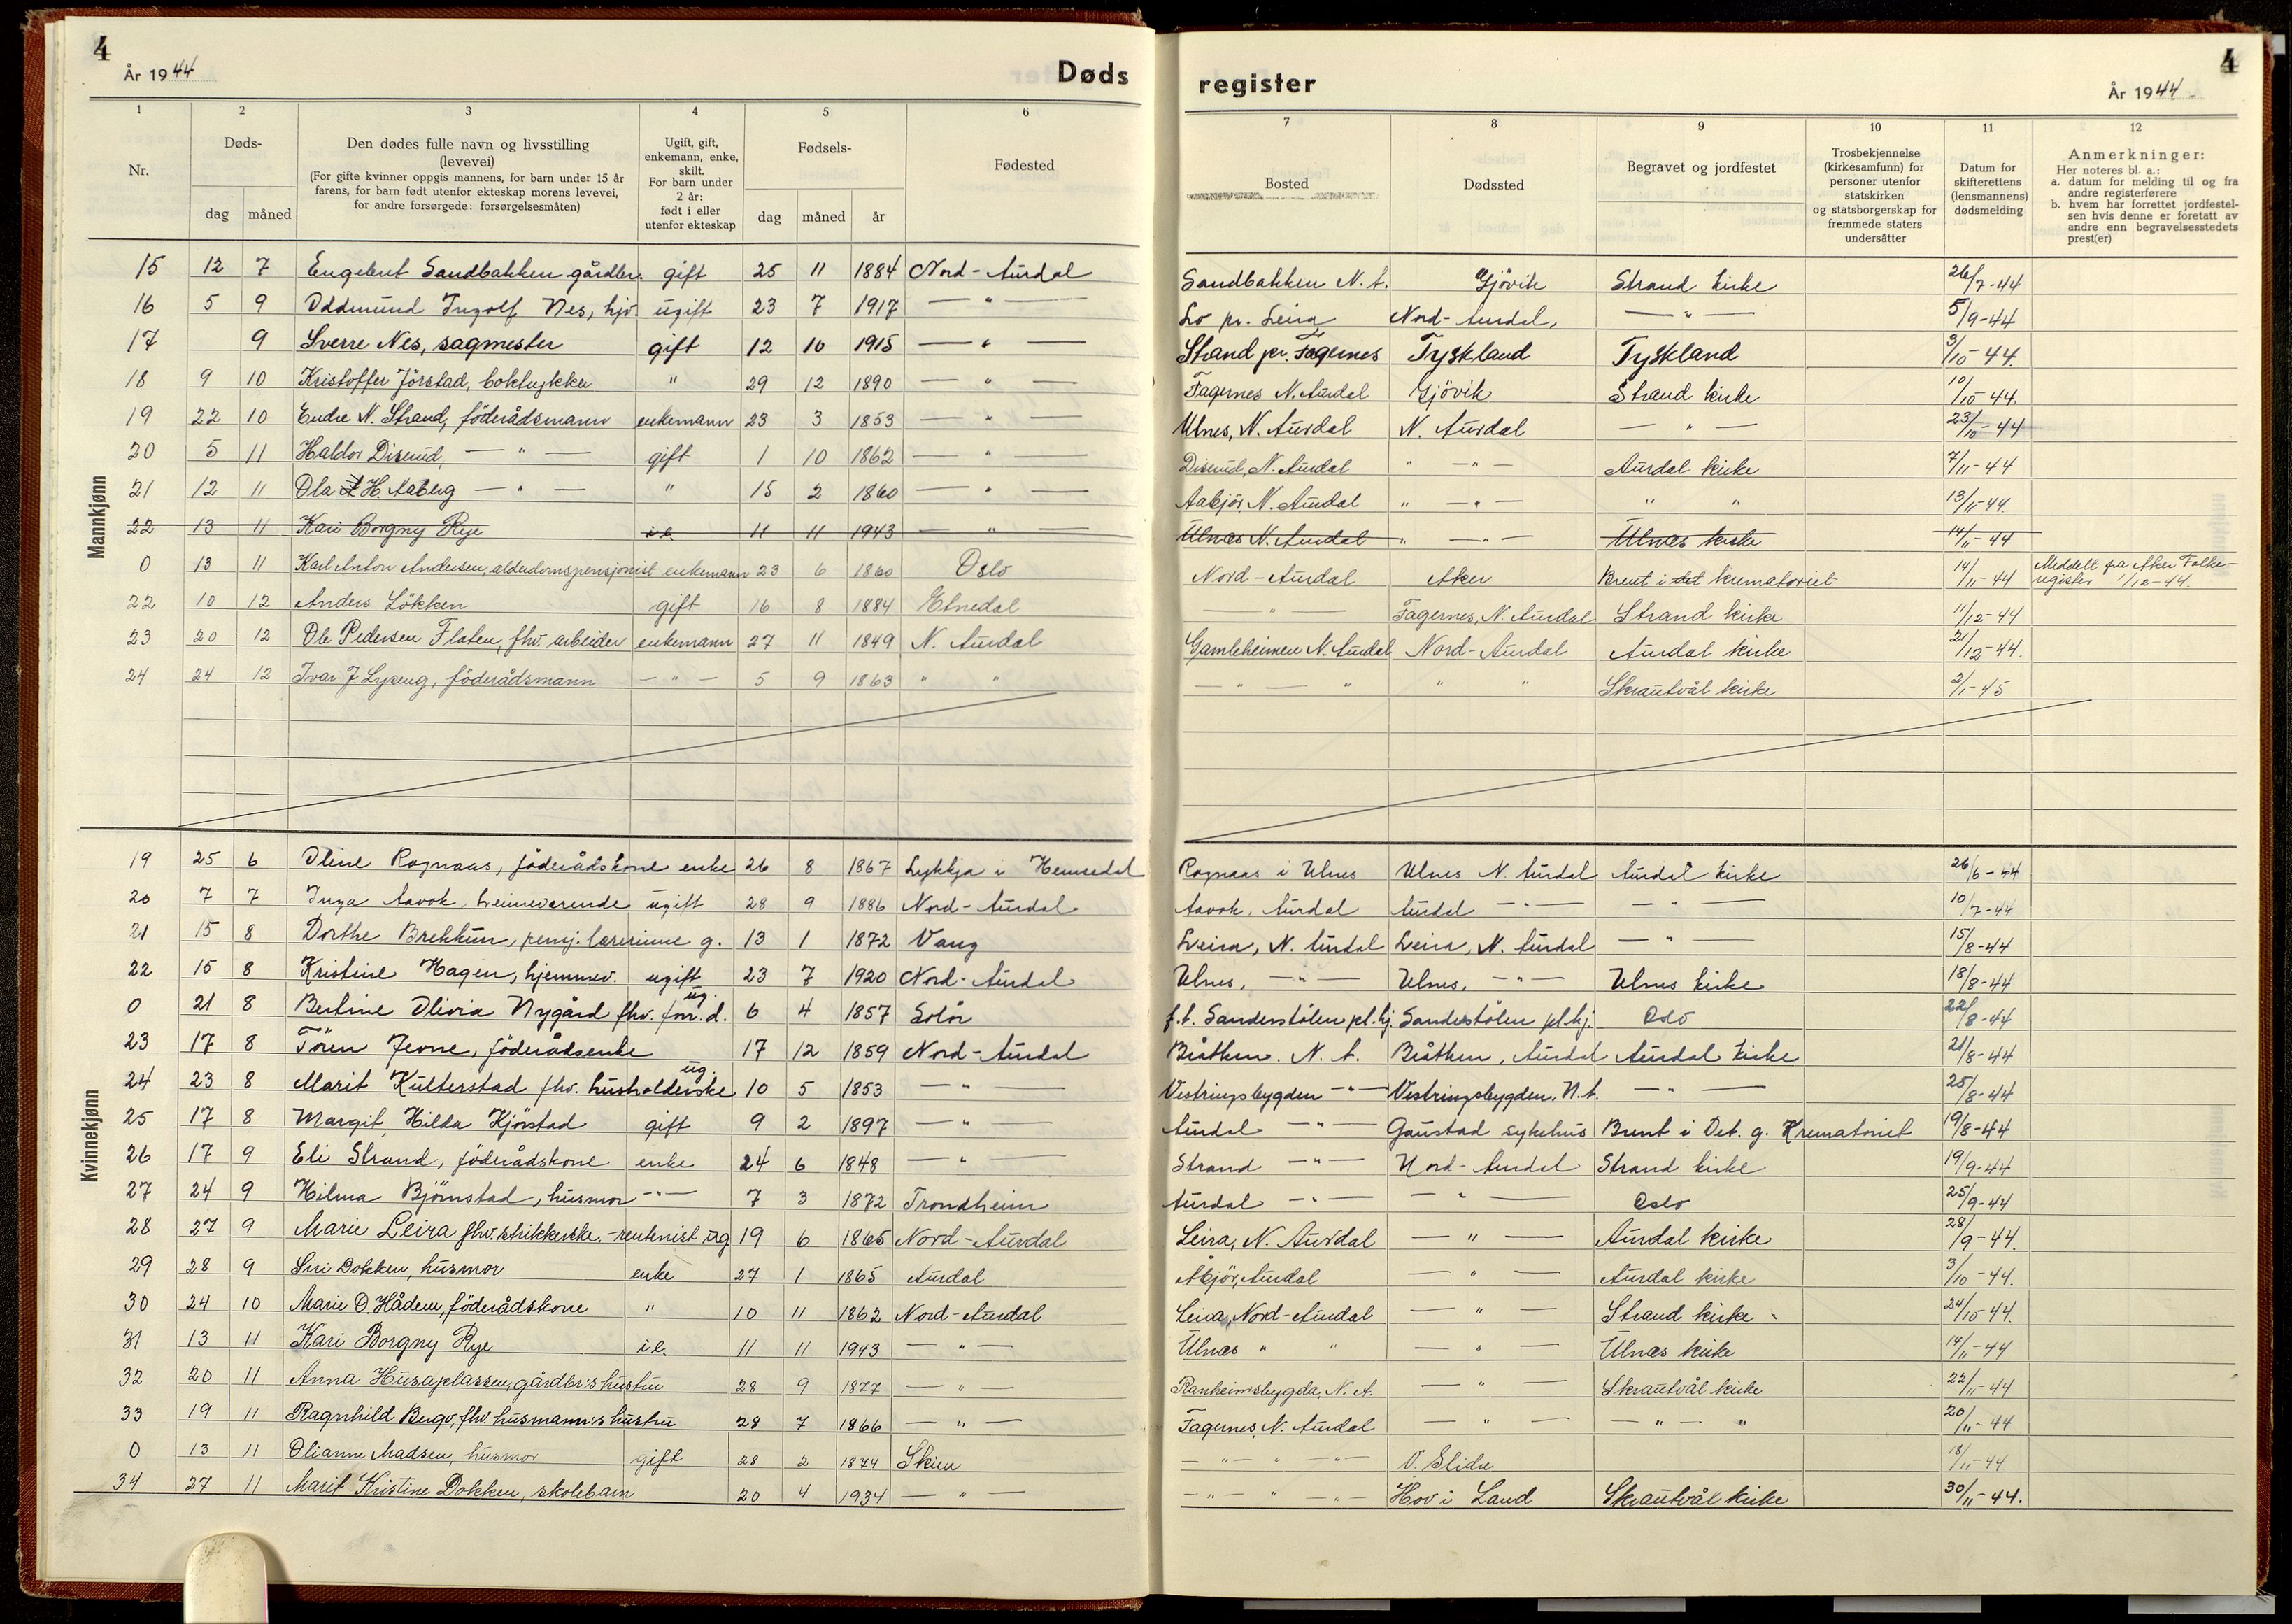 4
År 1944
Døds
1 2 3 4 5 6
Nr.
Døds-
dag måned
Den dødes fulle navn og livsstilling
(levevei)
(For gifte kvinner oppgis mannens, for barn under 15 år
farens, for barn født utenfor ekteskap morens levevei,
for andre forsørgede: forsørgelsesmåten)
Ugift, gift,
enkemann, enke,
skilt.
For barn under
2 år:
født i eller
utenfor ekteskap
Fødsels-
dag måned år
Fødested
Mannkjønn
15 12 7 Engebret Sandbakken gårdbr. gift 25 11 1884 Nord-Aurdal
16 5 9 Oddmund Ingolf Nes, hjv. ugift 23 7 1917 — " —
17 9 Sverre Nes, sagmester gift 12 10 1915 — " —
18 9 10 Kristoffer Jörstad, boktrykker " 29 12 1890 — " —
19 22 10 Endre N. Strand, föderådsmann enkemann 23 3 1853 — " —
20 5 11 Haldor Diserud, — " — gift 1 10 1862 — " —
21 12 11 Ola H. Aaberg — " — " 15 2 1860 — " —
22 13 11 Kari Borgny Rye i e. 11 11 1943 — " —
0 13 11 Karl Anton Andersen, alderdomspensjonist enkemann 23 6 1860 Oslo
22 10 12 Anders Lökken gift 16 8 1884 Etnedal
23 20 12 Ole Pedersen Flaten, fhv. arbeider enkemann 27 11 1849 N. Aurdal
24 24 12 Ivar J. , föderådsmann — " — 5 9 1863 " "
Kvinnekjønn
19 25 6 Oline Rognaas, föderådskone enke 26 8 1867 Lykkja i Hemsedal
20 7 7 Inga Aavok, heimeværende ugift 28 9 1886 Nord-Aurdal
21 15 8 Dorthe Brekkun, pensj. lærerinne g. 13 1 1872 Vang
22 15 8 Kristine Hagen, hjemmev. ugift 23 7 1920 Nord-Aurdal
0 21 8 Bertine Olivia Nygård fhv. forr.d. ug. 6 4 1857 Solör
23 17 8 Jevne, föderådsenke 17 12 1859 Nord-Aurdal
24 23 8 Marit Kulterstad fhv. husholderske ug. 10 5 1853 — " —
25 17 8 Margit Hilda Kjörstad gift 9 2 1897 — " —
26 17 9 Eli Strand, föderådskone enke 24 6 1848 — " —
27 24 9 Hilma Björnstad, husmor — " — 7 3 1872 Trondheim
28 27 9 Marie Leira fhv. strikkerske, -rentenist ug 19 6 1865 Nord-Aurdal
29 28 9 Siri Dokken, husmor enke 27 1 1865 Aurdal
30 24 10 Marie O. Hådem, föderådskone " 10 11 1862 Nord-Aurdal
31 13 11 Kari Borgny Rye i e. 11 11 1943 — " —
32 20 11 Anna Husaplassen, gårdbr:s hustru 28 9 1877 — " —
33 19 11 Ragnhild Bergo, fhv. husmann:s hustru 28 7 1866 — " —
0 13 11 Olianne Madsen, husmor gift 28 2 1874 Skien
34 27 11 Marit Kristine Dokken, skolebarn 20 4 1934 — " —
4
register
År 1944
7 8 9 10 11 12
Bosted
Dødssted
Begravet og jordfestet
Trosbekjennelse
(kirkesamfunn) for
personer utenfor
statskirken
og statsborgerskap for
fremmede staters
undersåtter
Datum for
skifterettens
(lensmannens)
dødsmelding
Anmerkninger:
Her noteres bl. a.:
a. datum for melding til og fra
andre registerførere
b. hvem har forrettet jordfestel-
sen hvis denne er foretatt av
andre enn begravelsesstedets
prest(er)
Sandbakken N. A. Gjövik Strand kirke 26/7-44
Lo pr. Leira Nord-Aurdal, — " — 5/9-44
Strand pr. Fagernes Tyskland Tyskland 3/10-44.
Fagernes N. Aurdal Gjövik Strand kirke 10/10-44.
Ulnes, N. Aurdal N. Aurdal — " — 23/10-44
Diserud, N. Aurdal " — " — Aurdal kirke 7/11-44
Aabjör, N. Aurdal " — " — " " 13/11-44
Ulnæs N. Aurdal " — " — Ulnæs kirke 14/11-44
Nord-Aurdal Aker Brent i det krematoriet 14/11-44 Meddelt fra Aker Folke-
register 1/12-44.
— " — Fagernes, N. Aurdal Strand kirke 11/12-44
Gamleheimen N. Aurdal Nord-Aurdal Aurdal kirke 21/12-44.
— " — " " " Skrautvål kirke 2/1-45
Rognaas i Ulnes Ulnes N. Aurdal Aurdal kirke 26/6-44
Aavok, Aurdal Aurdal — " — — " — 10/7-44
Leira, N. Aurdal Leira, N. Aurdal — " — 15/8-44
Ulnes, — " — Ulnes, — " — Ulnes kirke 18/8-44
f.t. Sanderstölen pl.hj. Sanderstölen pl.hj. Oslo 22/8-44
Bråthen. N. A. Bråthen, Aurdal Aurdal kirke 21/8-44
Vestringsbygden — " — Vestringsbygden, N.A. — " — 25/8-44
Aurdal — " — Gaustad sykehus Brent i Det. g. Krematoriet 19/8-44
Strand — " — Nord-Aurdal Strand kirke 19/9-44
Aurdal — " — — " — Oslo 25/9-44
Leira, N. Aurdal — " — Aurdal kirke 28/9-44.
Åbjör, Aurdal — " — Aurdal kirke 3/10-44.
Leira, Nord-Aurdal — " — Strand kirke 24/10-44.
Ulnæs " " — " — Ulnæs kirke 14/11-44
Ranheimsbygda, N. A. — " — Skrautvål kirke 22/11-44
Fagernes, N. Aurdal — " — — " — " 20/11-44
— " — " — " — V. Slidre 18/11-44
— " — " — " — Hov i Land Skrautvål kirke 30/11-44.